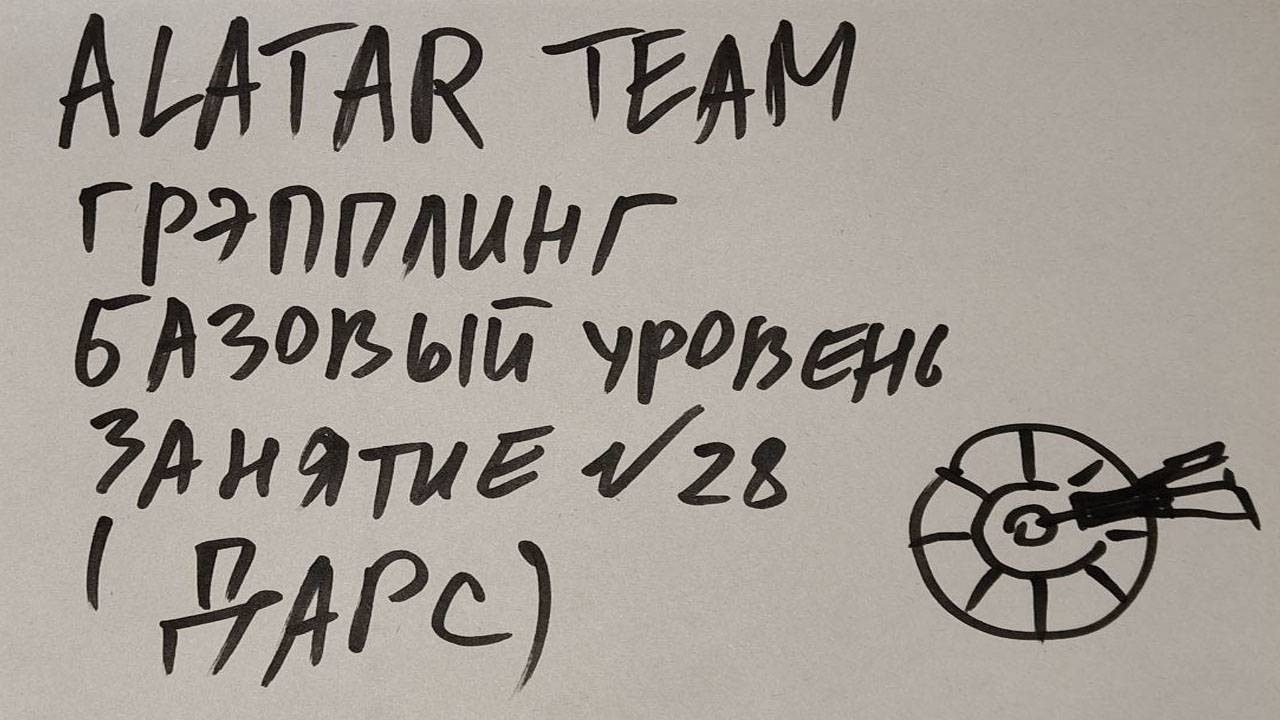 ALATAR TEAM
ГРЭППЛИНГ
БАЗОВЫЙ УРОВЕНЬ
ЗАНЯТИЕ √28
(ДАРС)